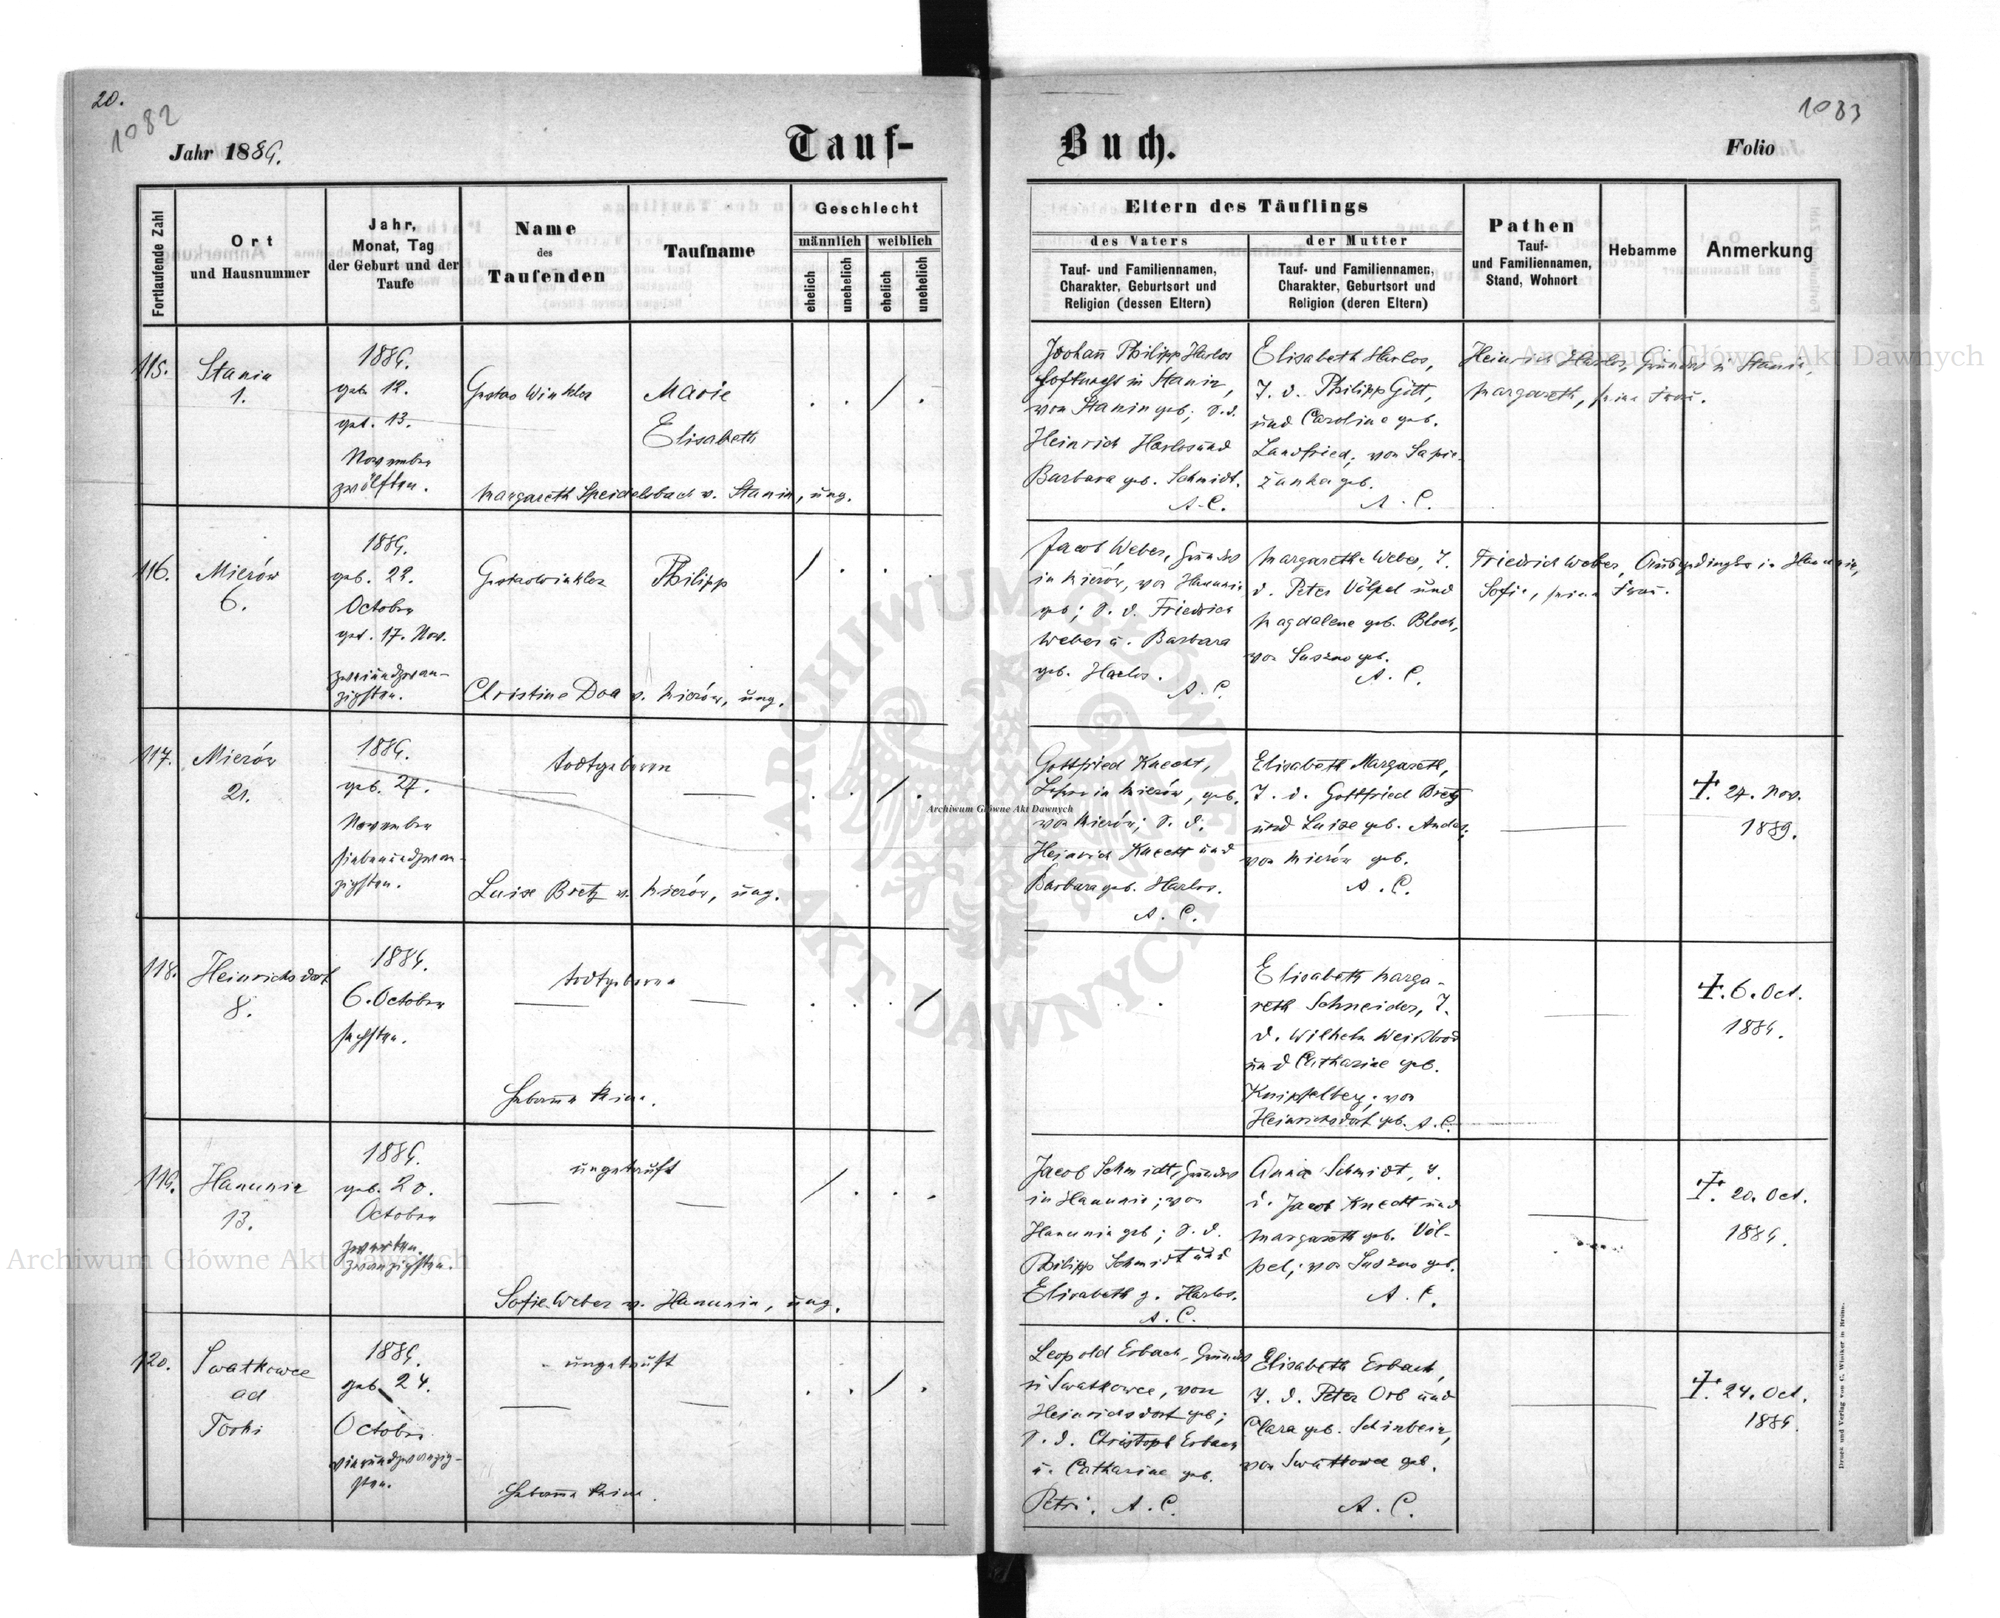 20.
1082
1083
Jahr 1889.
Tauf-
Buch.
Folio
Fortlaufende Zahl
Ort
und Hausnummer
Jahr,
Monat, Tag
der Geburt und der
Taufe
Name
des
Taufenden
Taufname
Geschlecht
männlich
weiblich
ehelich
unehelich
ehelich
unehelich
Eltern des Täuflings
des Vaters
der Mutter
Tauf- und Familiennamen,
Charakter, Geburtsort und
Religion (dessen Eltern)
Tauf- und Familiennamen,
Charakter, Geburtsort und
Religion (deren Eltern)
Pathen
Tauf-
und Familiennamen,
Stand, Wohnort
Hebamme
Anmerkung
115.
Stanin
1.
1889.
geb. 12.
get. 13.
November
zwölften.
Gustav Winkler
Marie
Elisabeth
Margareth Speidelsbach v. Stanin, ung.
Johann Philipp Harlos
in Stanin,
von Stanin geb; S. d.
Heinrich Harlos und
Barbara geb. Schmidt.
A. C.
Elisabeth Harlos,
T. d. Philipp Gitt,
und Caroline geb.
Landfried; von Sapie-
zanka geb.
A. C.
Heinrich Harlos, Grundw. in Stanin,
Margareth, seine Frau.
116.
Mierów
6.
1889.
geb. 22.
October
get. 17. Nov.
zweiundzwan-
zigsten.
Gustav Winkler
Philipp
Christine Doa v. Mierów, ung.
Jacob Weber, Grundw
in Mierów, von Hanunin
geb; S. d. Friedrich
Weber u. Barbara
geb. Harlos.
A. C.
Margarethe Weber, T.
d. Peter Völpel und
Magdalene geb. Bloch,
von Suszno geb.
A. C.
Friedrich Weber, Ausgedingter in Hanunin,
Sofie, seine Frau.
117.
Mierów
21.
1889.
geb. 27.
November
siebenundzwan-
zigsten.
todtgeboren
Luise Bretz v. Mierów, ung.
Gottfried Knecht,
Lehrer in Mierów, geb.
von Mierów; S. d.
Heinrich Knecht und
Barbara geb. Harlos.
A. C.
Elisabeth Margareth,
T. d. Gottfried Bretz
und Luise geb. Andres;
von Mierów geb.
A. C.
†. 27. Nov.
1889.
118.
Heinrichsdorf
8.
1889.
6. October
sechsten.
todtgeboren
Hebamme keine.
Elisabeth Marga-
reth Schneider, T.
d. Wilhelm Weißbrod
und Catharine geb.
Knipfelberg; von
Heinrichsdorf geb. A. C.
†. 6. Oct.
1889.
119.
Hanunin
13.
1889.
geb. 20.
October
zwanzigsten.
ungetauft
Sofie Weber v. Hanunin, ung.
Jacob Schmidt, Grundw
in Hanunin; von
Hanunin geb; S. d.
Philipp Schmidt und
Elisabeth g. Harlos.
A. C.
Anna Schmidt, T.
d. Jacob Knecht und
Margareth geb. Völ-
pel; von Suszno geb.
A. C.
†. 20. Oct.
1889.
120.
Swatkowce
ad
Toski
1889.
geb. 24.
October
vierundzwanzig-
sten.
ungetauft
Hebamme keine.
Leopold Erbach, Grundw
in Swatkowce, von
Heinrichsdorf geb;
S. d. Christoph Erbach
u. Catharine geb.
Petri. A. C.
Elisabeth Erbach,
T. d. Peter Orb und
Clara geb. Scheinbein,
von Swatkowce geb.
A. C.
†. 24. Oct.
1889.
Druck und Verlag von C. Winiker in Brünn.
Archiwum Główne Akt Dawnych
Archiwum Główne Akt Dawnych
Archiwum Główne Akt Dawnych
ARCHIWUM GŁÓWNE AKT DAWNYCH